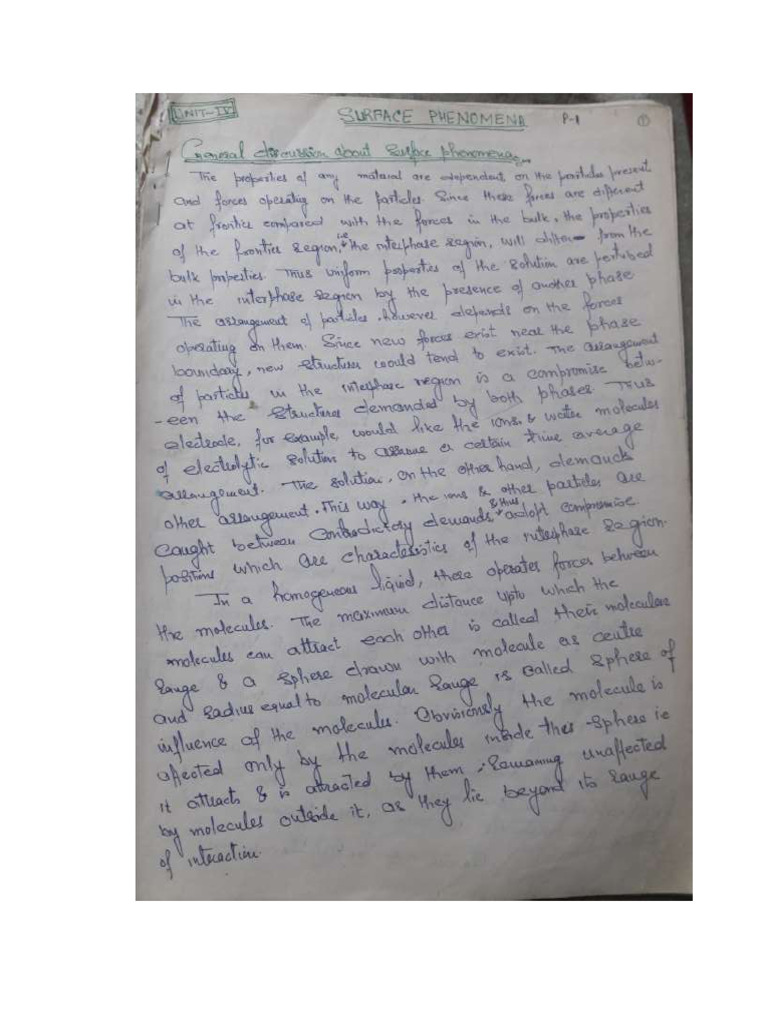 UNIT-IV
SURFACE PHENOMENA P-1 ①
General discussion about Surface phenomena
The properties of any material are dependent on the particles present
and forces operating on the particles Since these forces are different
at frontier compared with the forces in the bulk, the properties
of the frontier region, i.e the interphase region, will differ from the
bulk properties. Thus uniform properties of the solution are perturbed
in the interphase region by the presence of another phase
The arrangement of particles, however depends on the forces
operating on them. Since new forces exist near the phase
boundary, new structures would tend to exist. The arrangement
of particles in the interphase region is a compromise betw-
-een the structures demanded by both phases. Thus
electrode, for example, would like the ions & water molecules
of electrolytic solution to assume a certain time average
arrangement. The solution, on the other hand, demands
other arrangement. This way, the ions & other particles are
caught between contradictory demands & thus adopt compromise
positions which are characteristics of the interphase region.
In a homogeneous liquid, there operates forces between
the molecules. The maximum distance upto which the
molecules can attract each other is called their molecular
range & a sphere drawn with molecule as centre
and radius equal to molecular range is called sphere of
influence of the molecules. Obviously the molecule is
affected only by the molecules inside this sphere ie
it attracts & is attracted by them, remaining unaffected
by molecules outside it, as they lie beyond its range
of interaction.